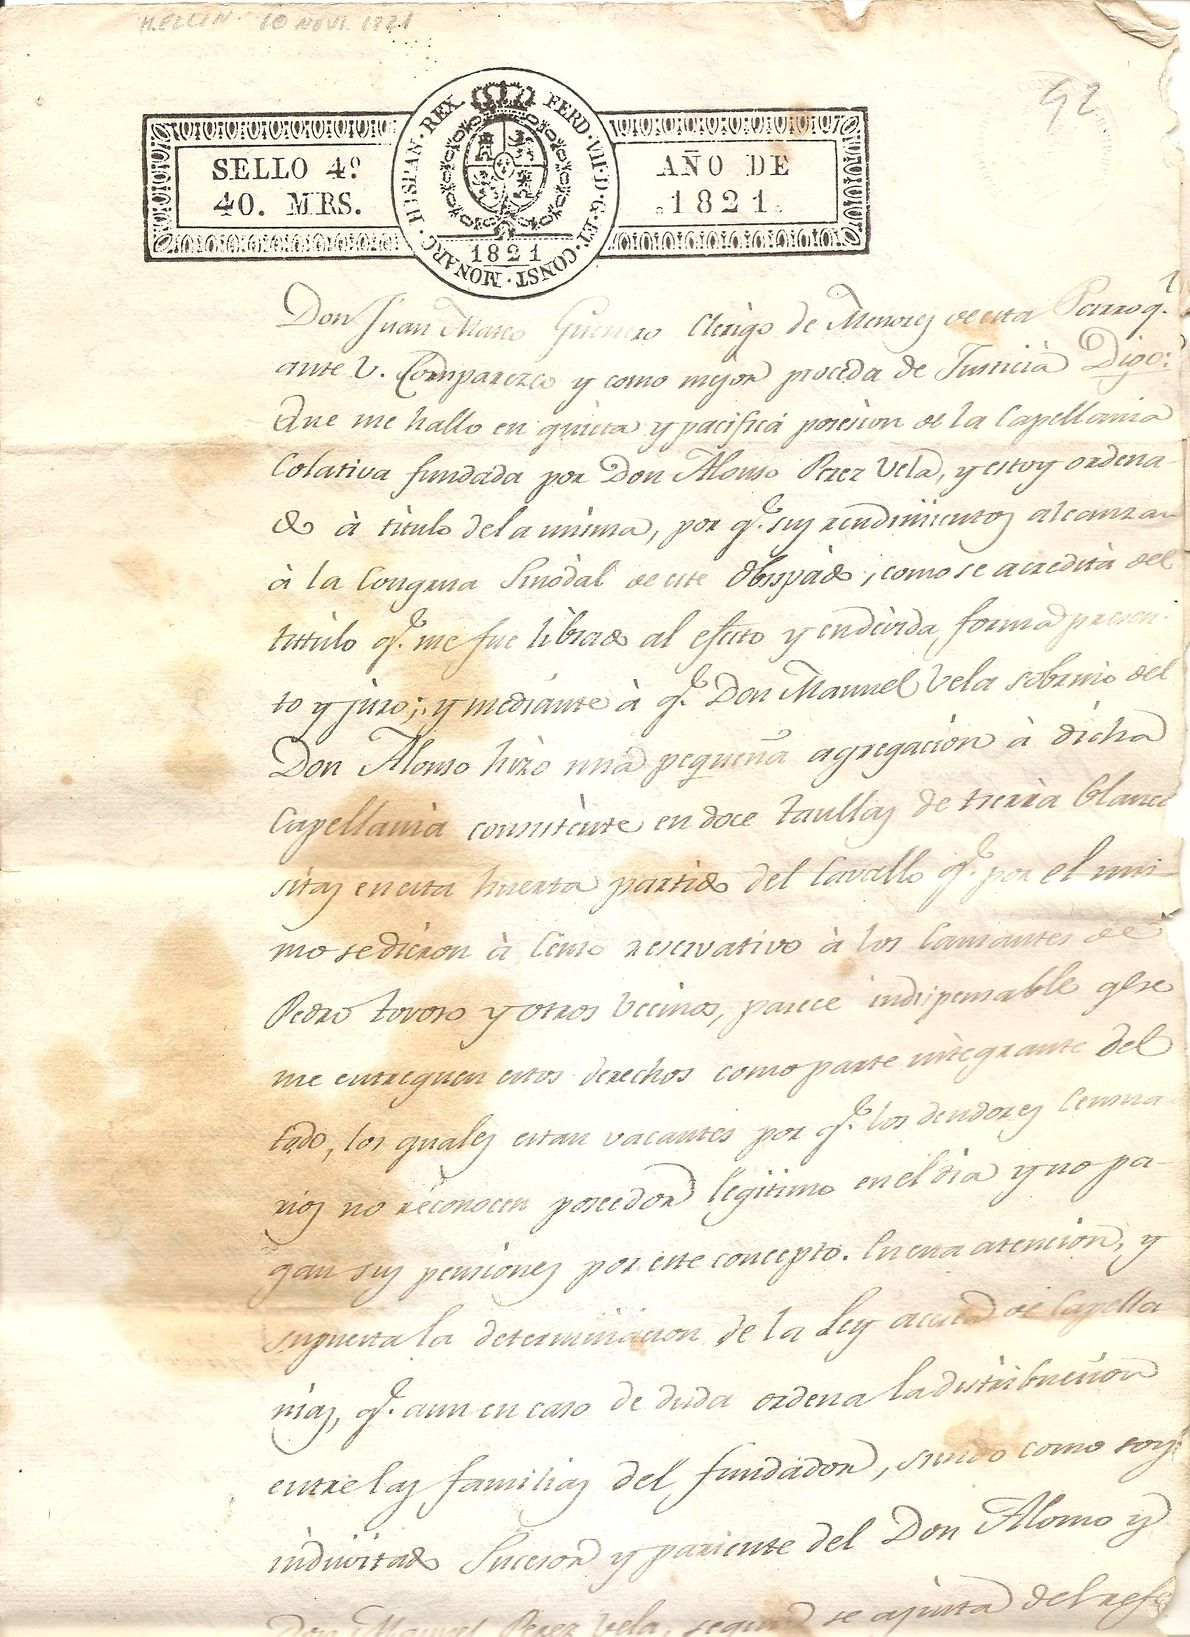 HELLIN 10 NOV. 1821
92
SELLO 4º
40. MRS.
HISPAN. REX. FERD. VII. D. G. ET. CONST. MONARC.
1821
AÑO DE
1821.
Don Juan Mateo Guerrero Clerigo de Menores de esta Parroq.
ante V. Comparezco y como mejor proceda de Justicia Digo:
Que me hallo en quieta y pacifica posesion de la Capellania
Colativa fundada por Don Alonso Perez Vela, y estoy ordena-
do à titulo dela misma, por q.e sus rendimientos alcanzan
à la Congrua Sinodal de este Obispado, como se acredita del
titulo q.e me fue librado al efecto y en devida forma presen-
to y juro; y mediante à q.e Don Manuel Vela sobrino del
Don Alonso hizo una pequeña agregacion à dicha
Capellania consistente en doce taullas de tierra blanca
sitas en esta huerta partido del Cavallo q.e por el mis-
mo se dieron à Censo reservativo à los Causantes de
Pedro Tovoso y otros vecinos, parece indispensable q.e se
me entreguen estos derechos como parte integrante del
todo, los quales estan vacantes por q.e los deudores Censua-
rios no reconocen poseedor legitimo en el dia y no pa-
gan sus pensiones por este concepto. En esta atencion, y
supuesta la determinacion de la Ley acerca de Capella
nias, q.e aun en caso de duda ordena la distribucion
entre las familias del fundador, siendo como soy
indivitado Sucesor y pariente del Don Alonso y
Don Manuel Perez Vela, segun se ajusta del refe